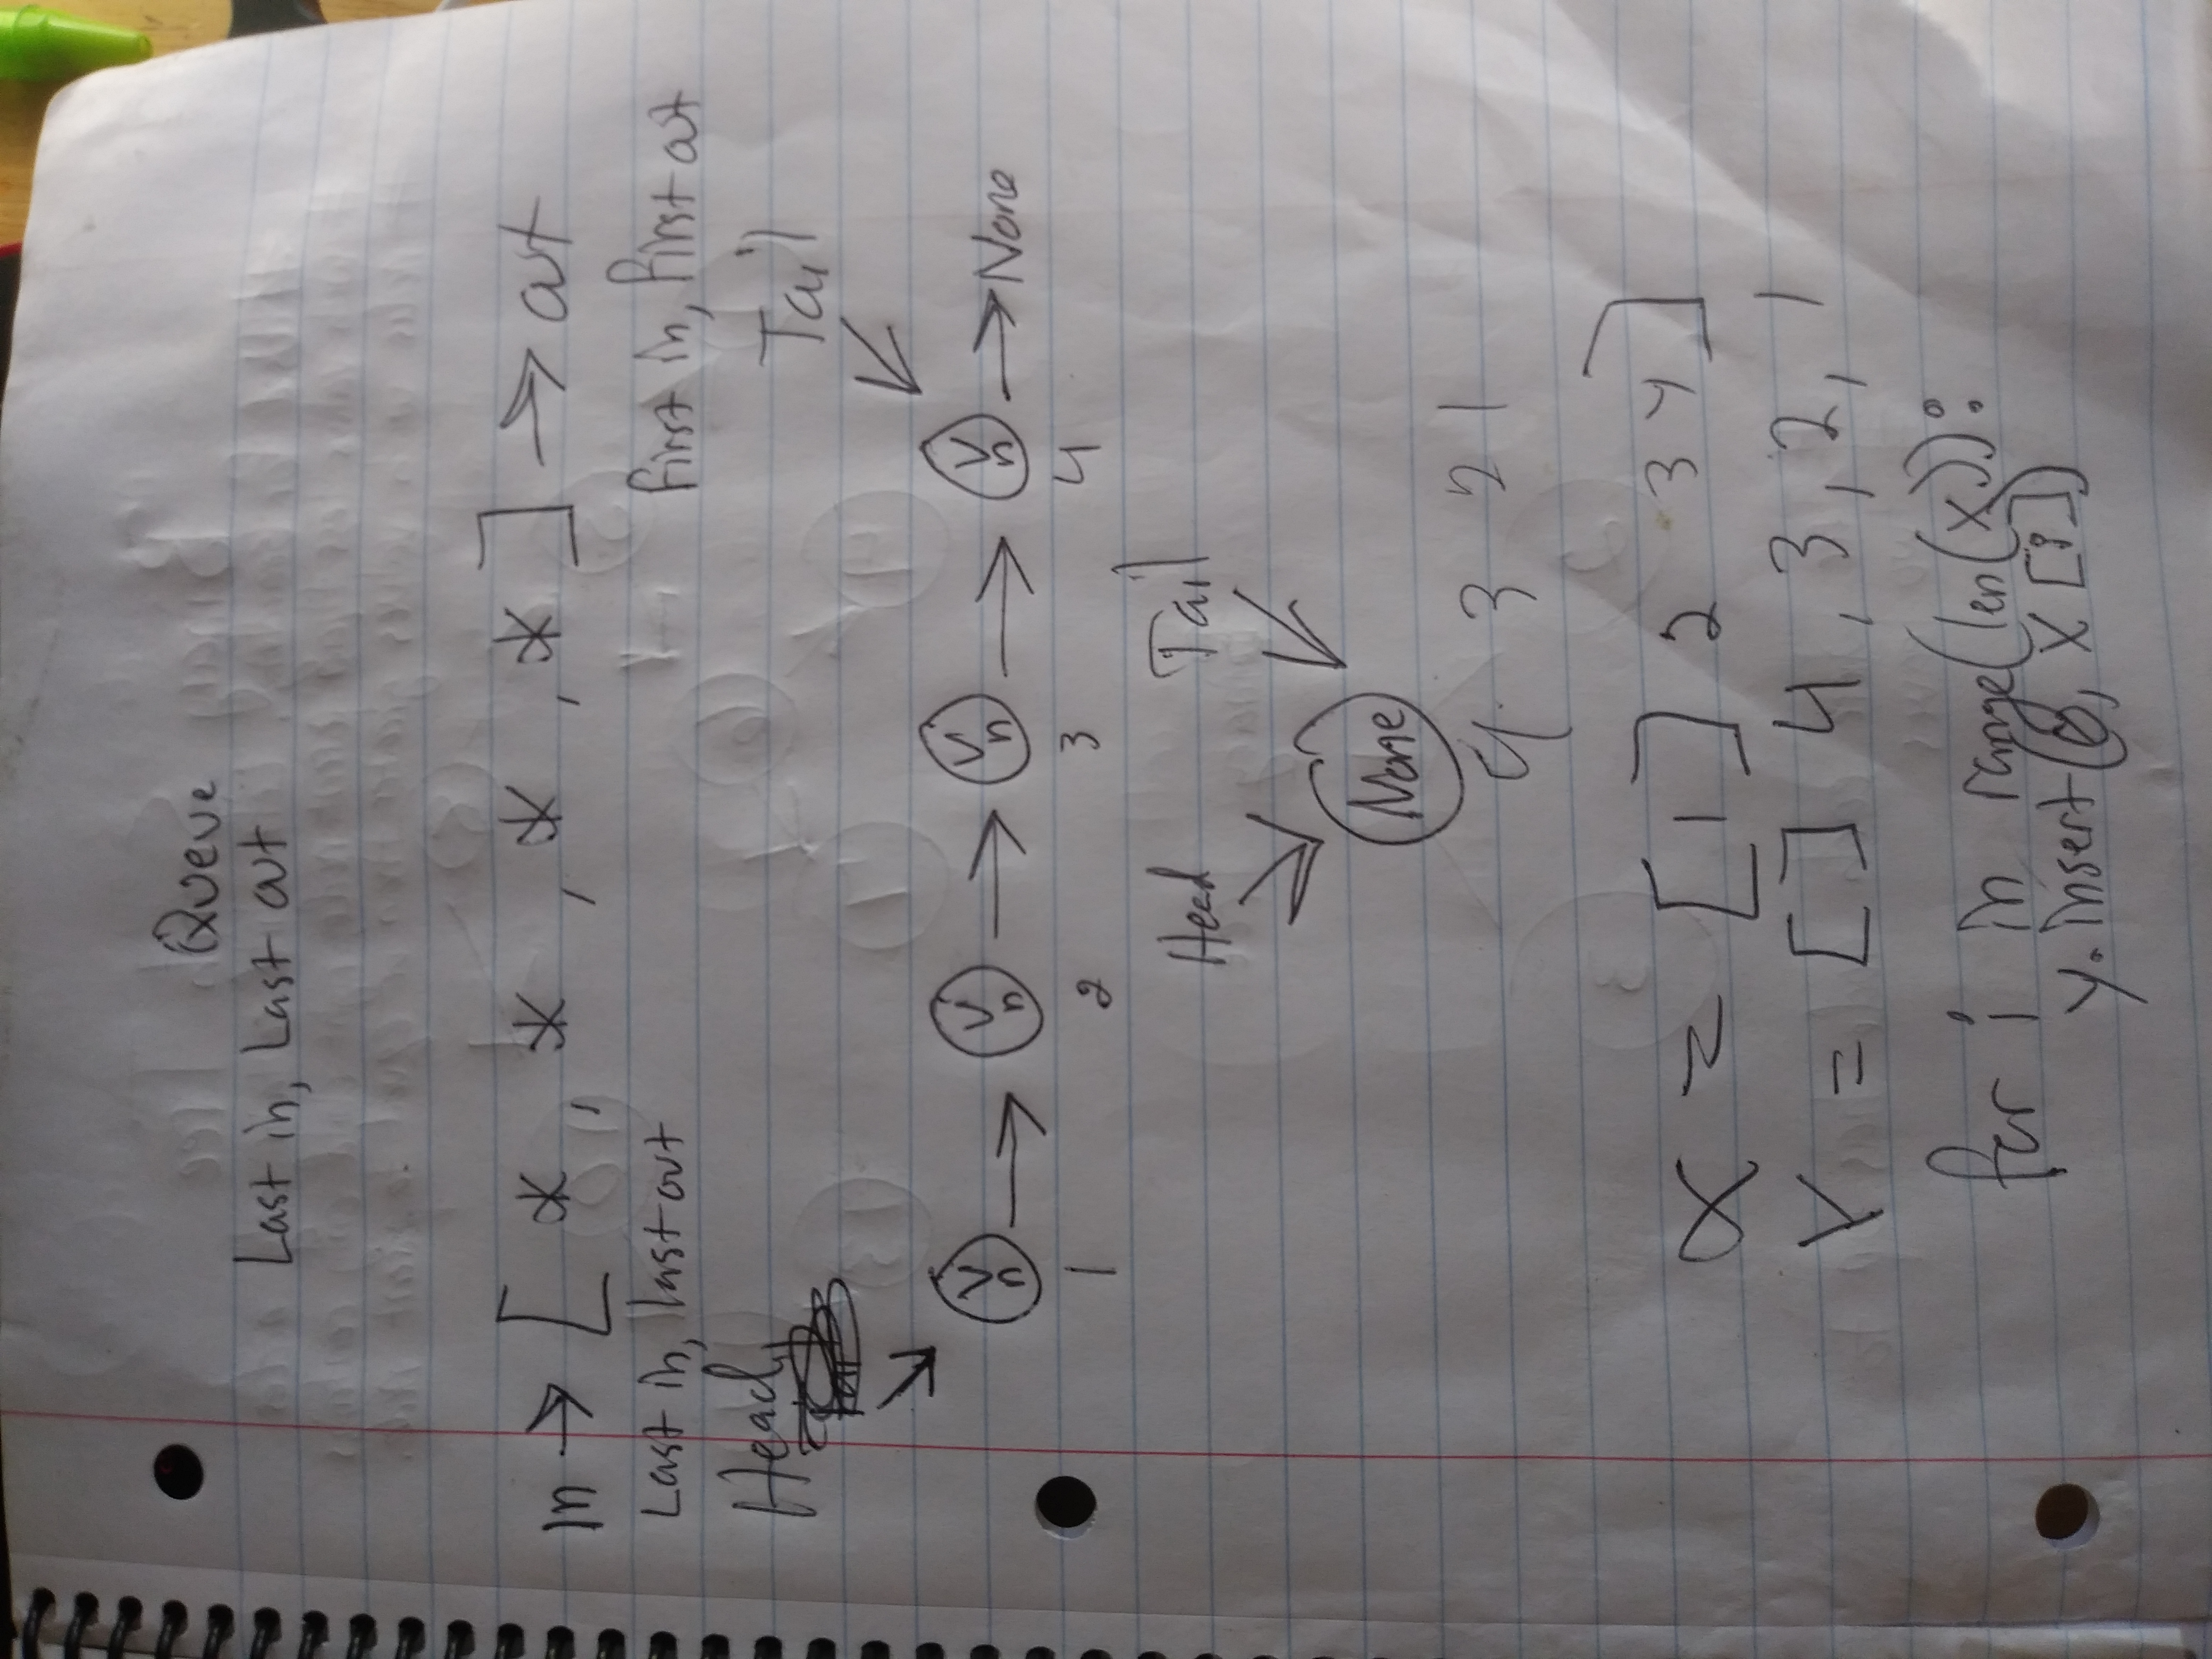 Queue
Last in, Last out
In → [ * , * , * , * ] → out
Last in, last out First in, First out
Head Tail
V n → V n → V n → V n → None
1 2 3 4
Head Tail
None
4 3 2 1
x = [ 1 ] 2 3 4 ]
Y = [ ] 4 , 3 , 2 , 1
for i in range(len(x)):
y.insert(0, x[i])